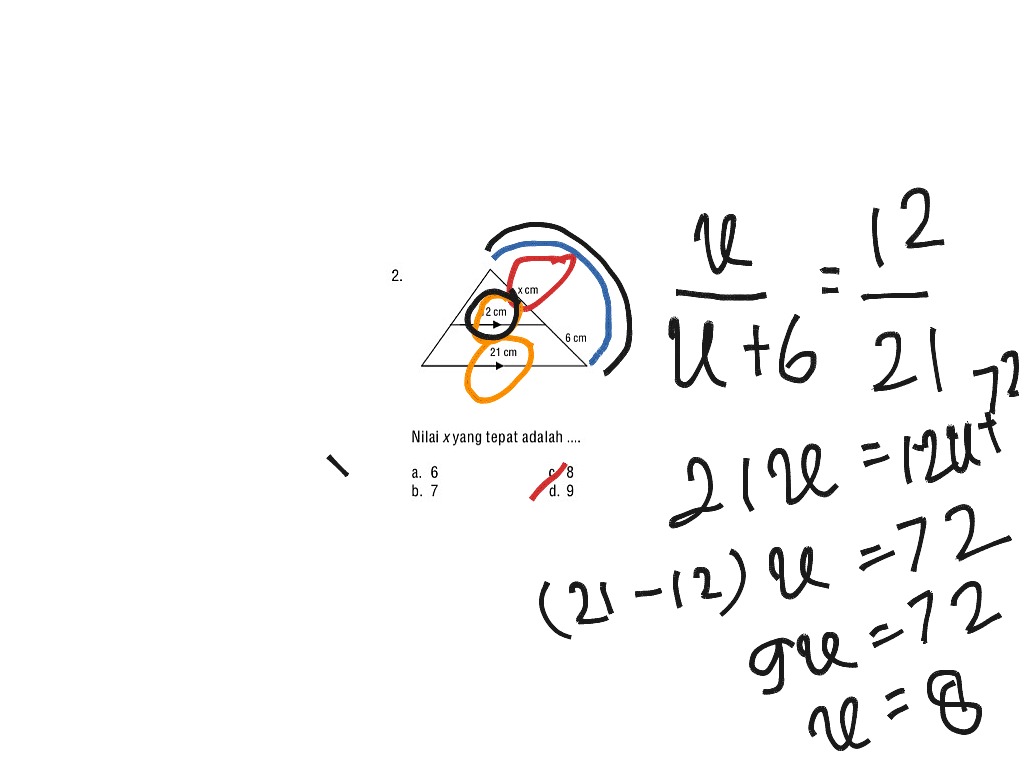 2.
x cm
2 cm
6 cm
21 cm
Nilai x yang tepat adalah ....
a. 6
c. 8
b. 7
d. 9
x/x+6 = 12/21
21x = 12x+72
(21-12)x = 72
9x = 72
x = 8